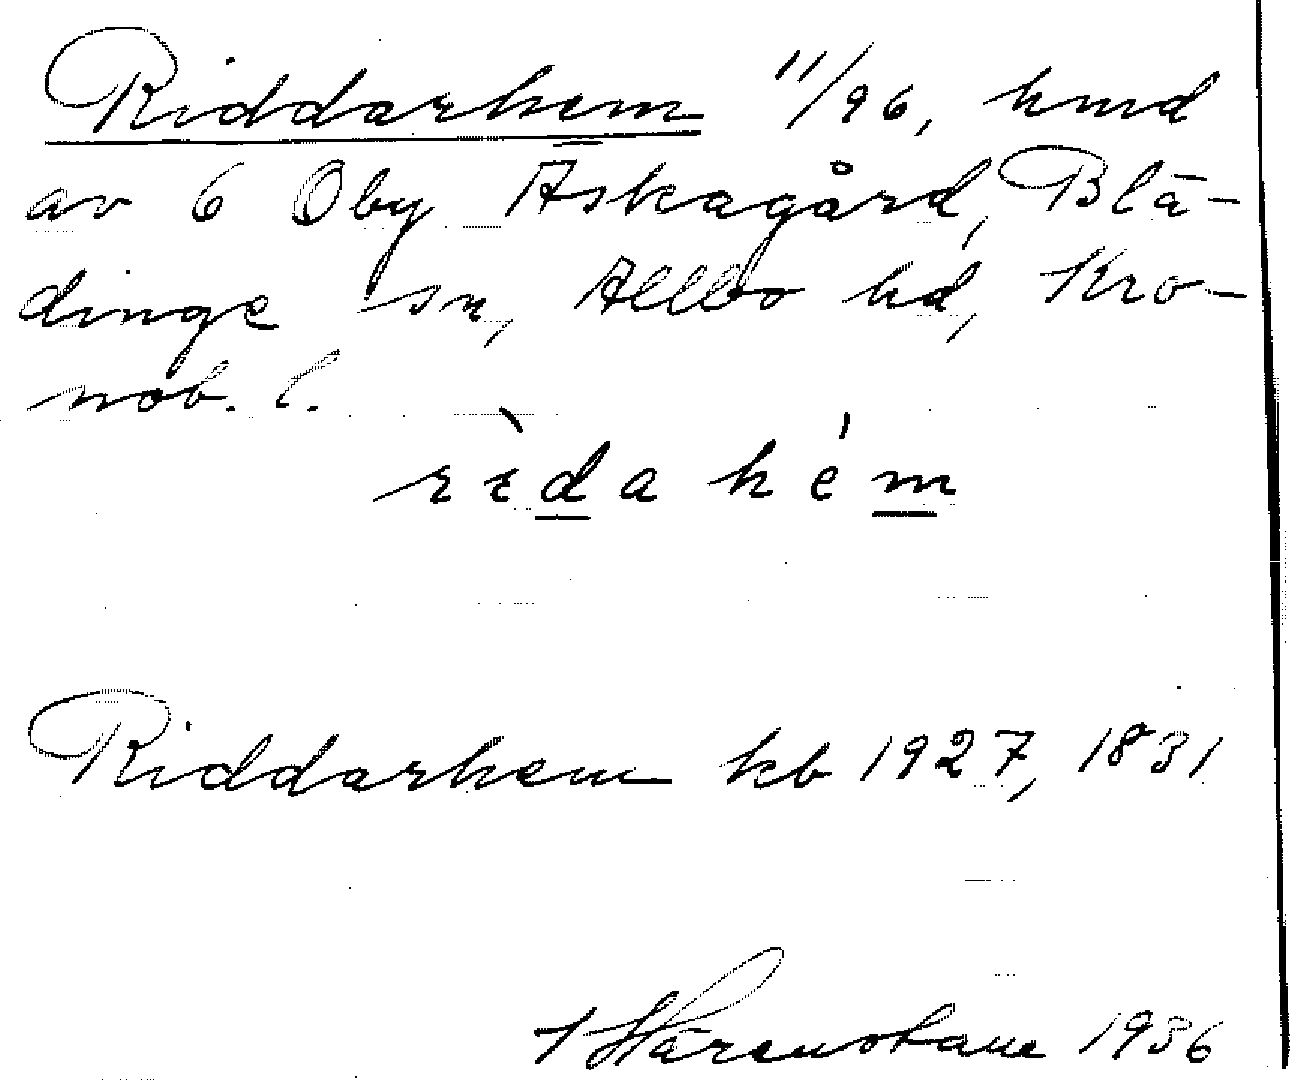 Riddarhem 11/96, hmd
av 6 Oby Äskagård, Blä-
dinge sn, Allbo hd, Kro-
nob. l.
rìdahém
Riddarhem kb 1927, 1831
1936